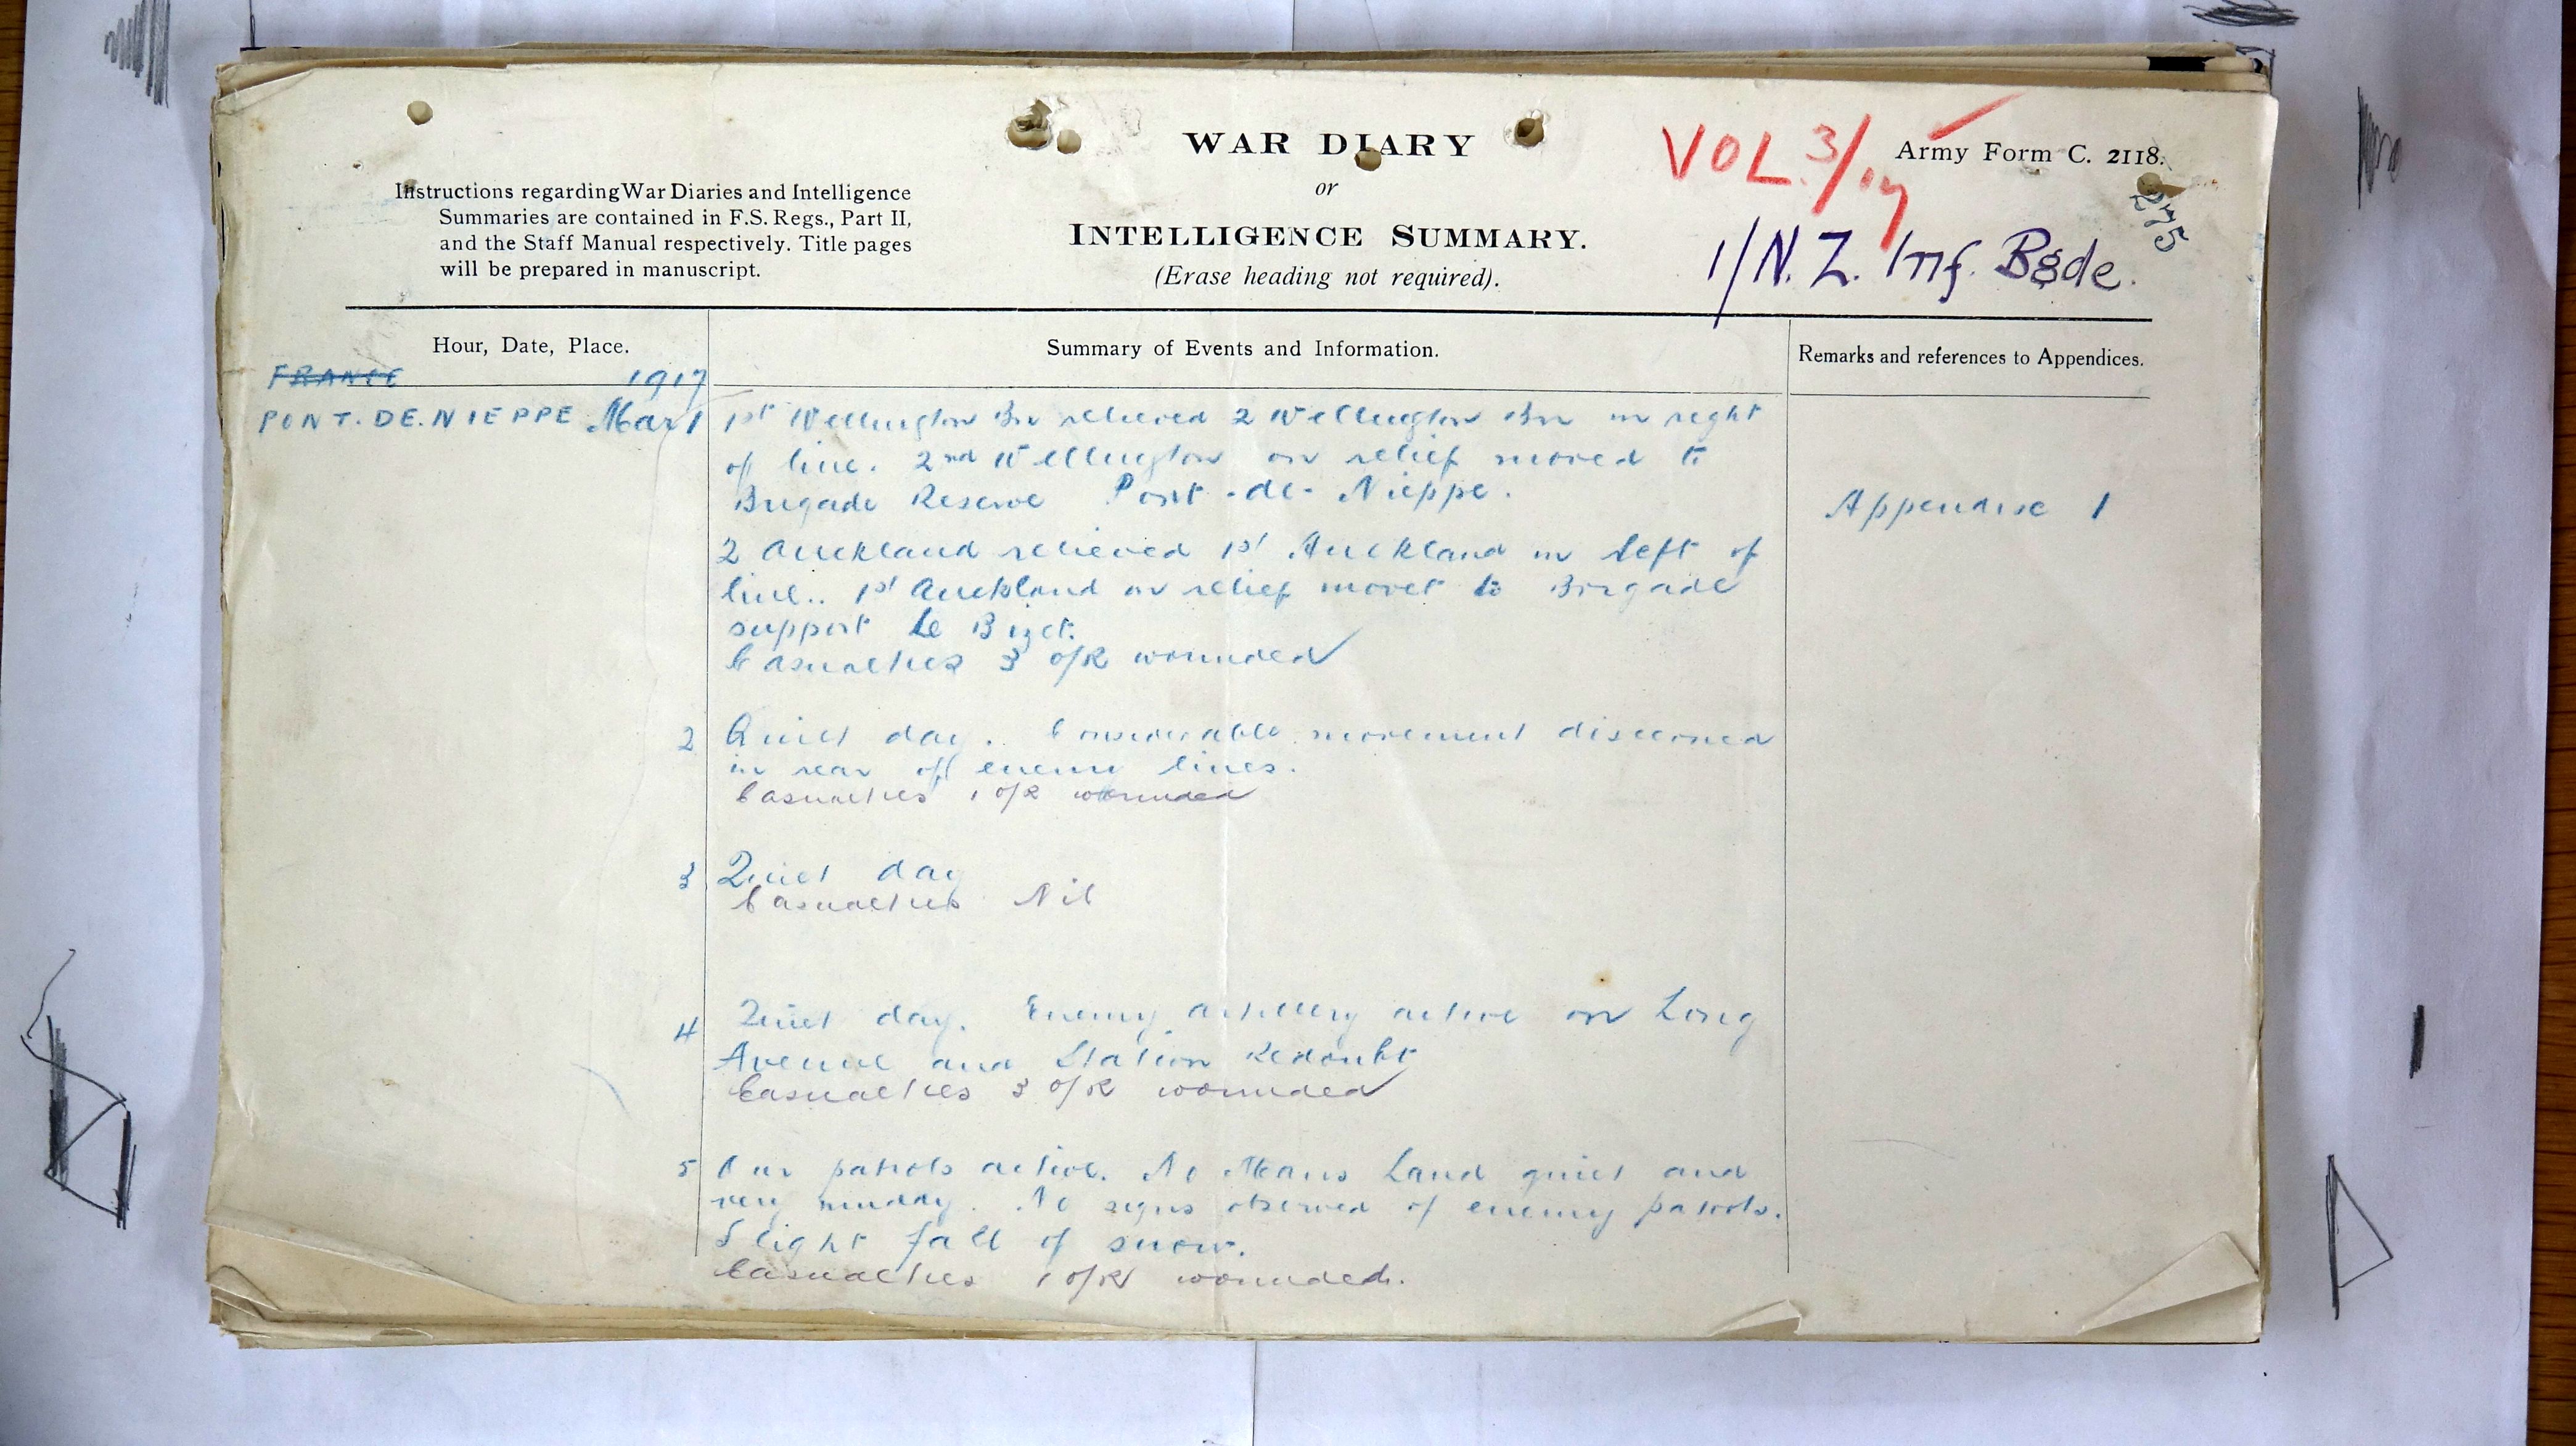 WAR DIARY
or
INTELLIGENCE SUMMARY.
(Erase heading not required).
Instructions regarding War Diaries and Intelligence
Summaries are contained in F.S. Regs., Part II,
and the Staff Manual respectively. Title pages
will be prepared in manuscript.
VOL. 3/17
Army Form C. 2118.
275
1/N.Z. Inf. Bgde.
Hour, Date, Place.
Summary of Events and Information.
Remarks and references to Appendices.
FRANCE 1917
PONT.DE.NIEPPE Mar 1
1st Wellington Bn relieved 2 Wellington Bn in right
of line. 2nd Wellington on relief moved to
Brigade Reserve Pont-de-Nieppe.
Appendix 1
2 Auckland relieved 1st Auckland in left of
line.. 1st Auckland on relief moved to Brigade
support Le Bizet.
Casualties 3 O/R wounded
2 Quiet day. Considerable movement discerned
in rear of enemy lines.
Casualties 1 O/R wounded
3 Quiet day
Casualties Nil
4 Quiet day. Enemy artillery active on Long
Avenue and Station Redoubt
Casualties 3 O/R wounded
5 Our patrols active. No Mans Land quiet and
very muddy. No signs observed of enemy patrols.
Slight fall of snow.
Casualties 1 O/R wounded.